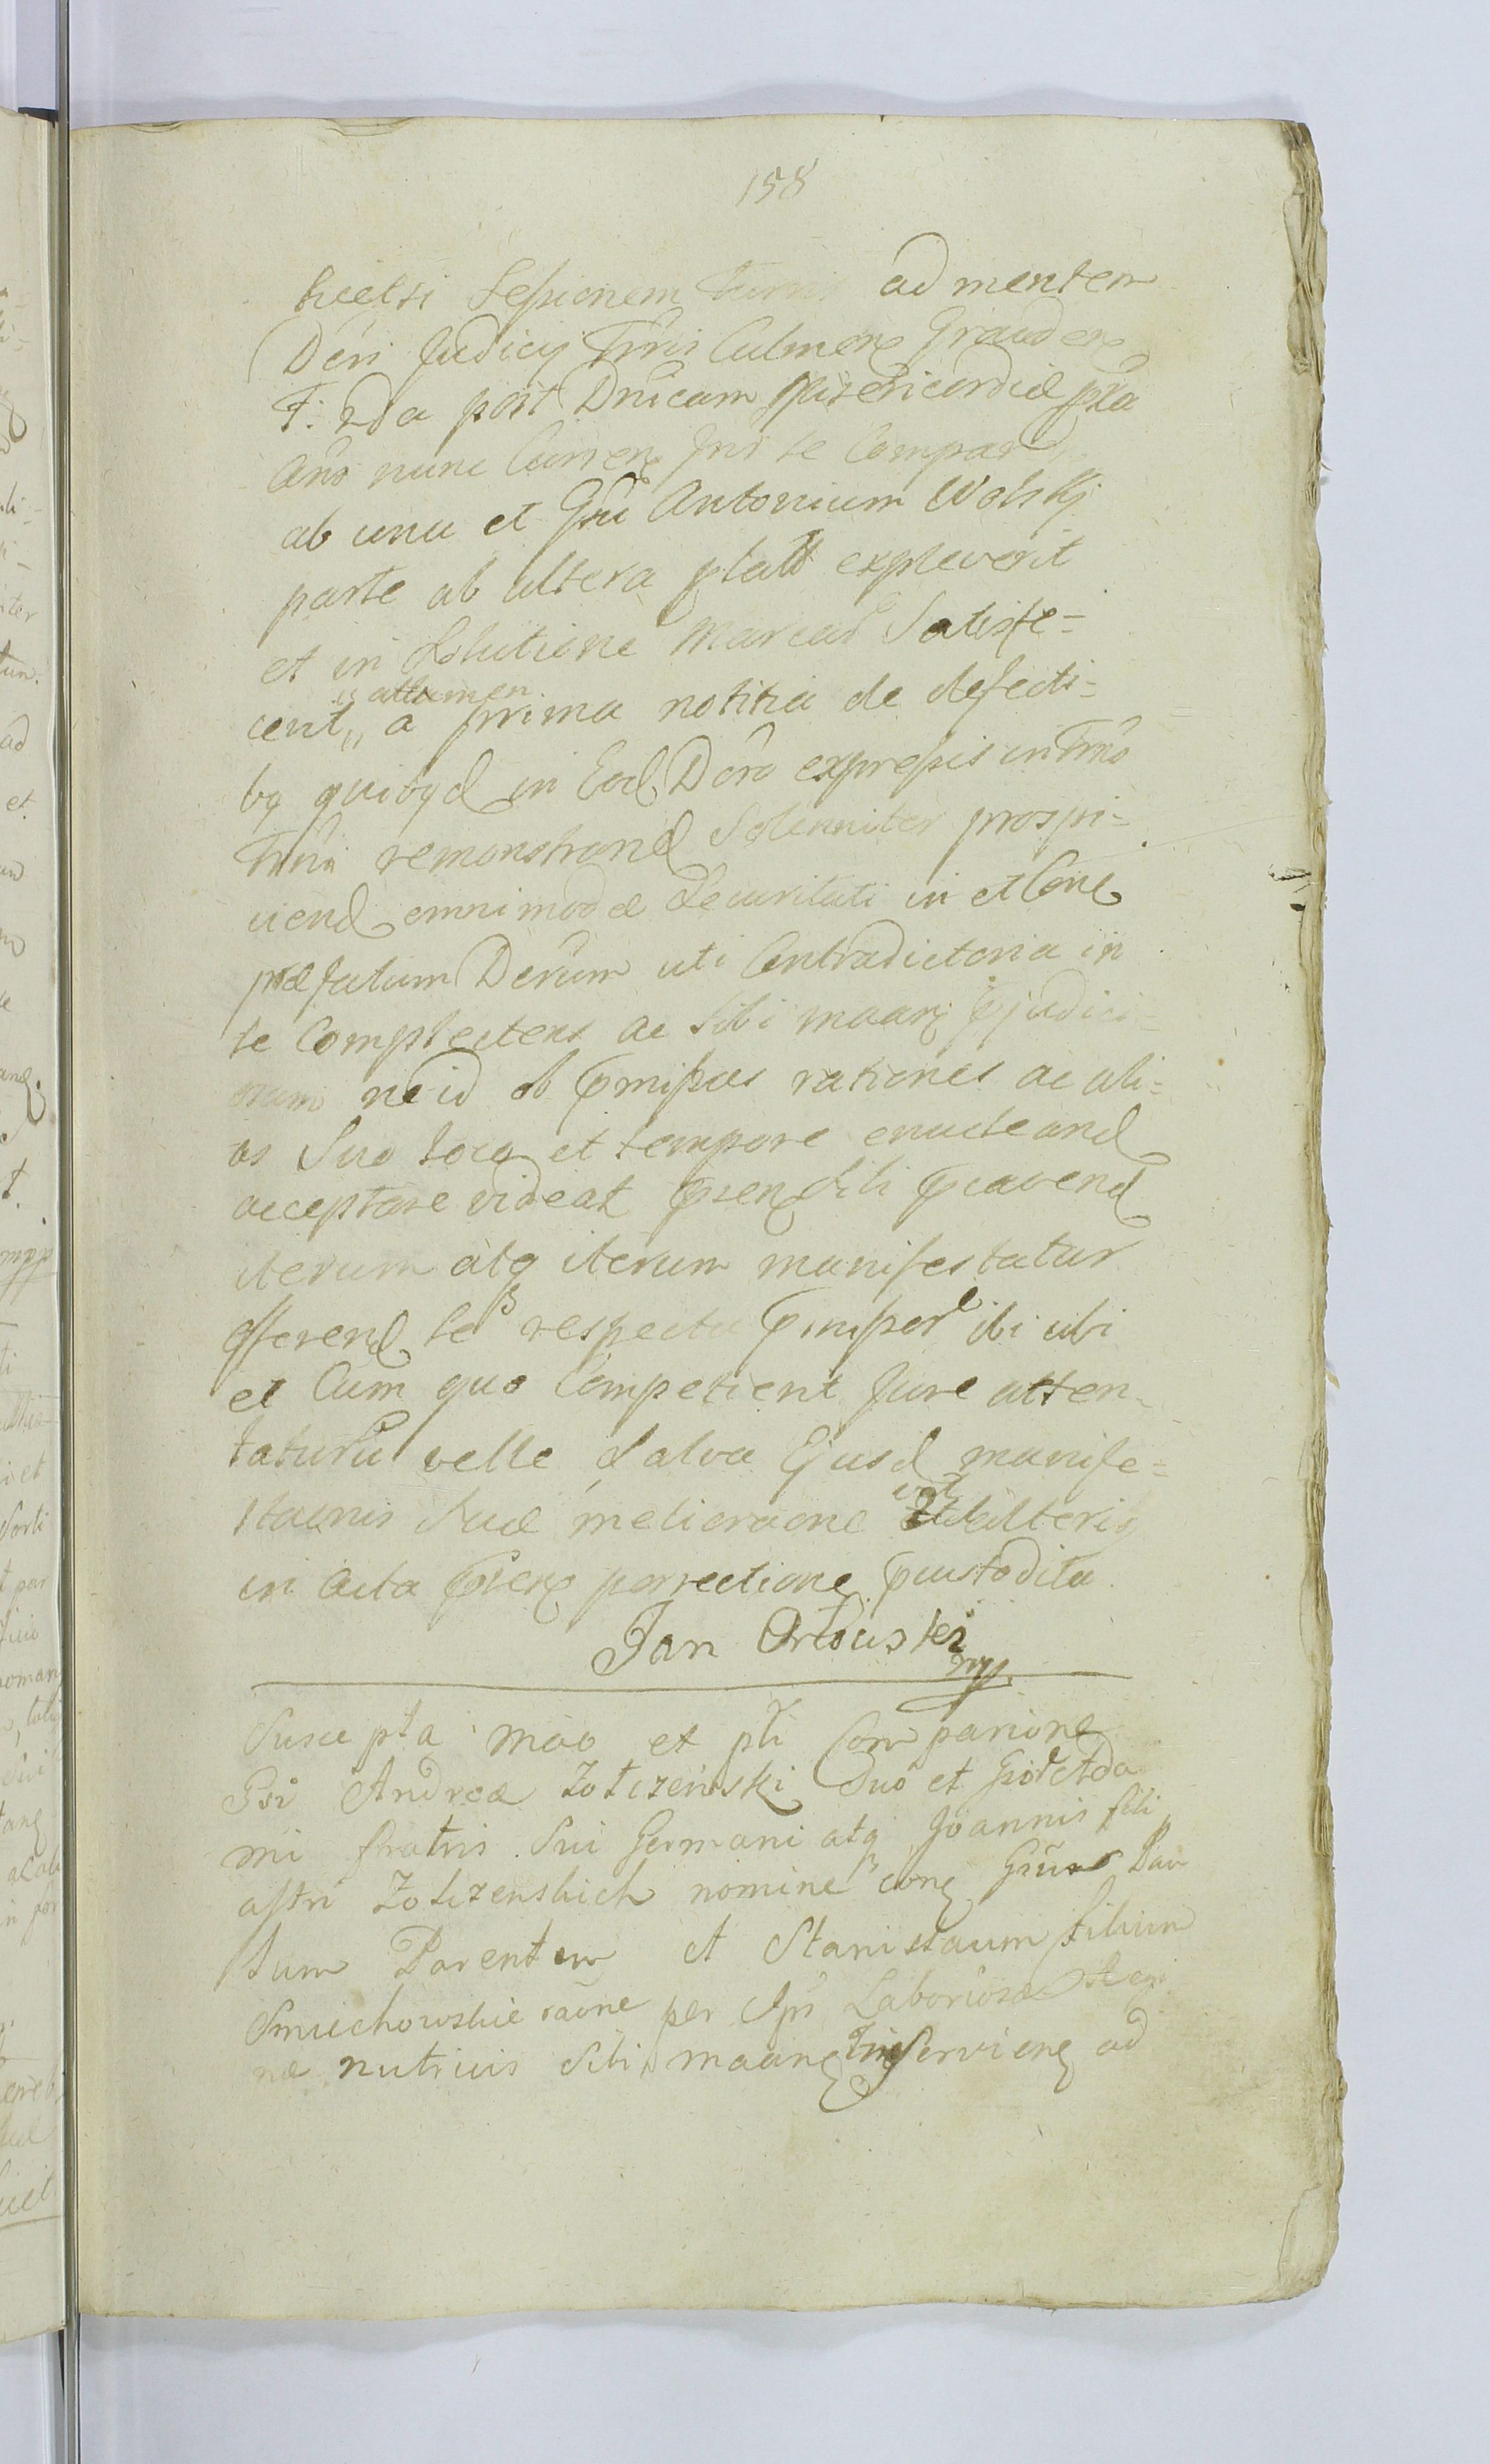 158
Sessionem Turris ad mentem
Dcri Judicij Tris Culmens Graudens
F: 2da post Dnicam Misericordiæ pxa
Ano nunc Curren Inr se Compar
ab una et Gsũ Antonium Wolskj
parte ab altera plat expleverit
et in Solutione Marcar Satisfe=
cerit, is attamen a prima notitia de defecti=
bq quibqd in Eod Dcro expressis in Trno
remonstrand Solenniter prospi=
ciend omnimodæ Securitati in et Cone
præfatum Derum uti Contradictoria in
se Complectens ac Sibi maan pjudici=
osum ne id ob pmissas rationes ac ali=
as Suo loco et tempore enucleand
acceptare videat psen Sibi pcavend
iterum atq iterum manifestatur
offerend se respectu pmissor ibi ubi
et Cum quo Competient Jure atten=
taturũ velle, Salva Ejusd manife=
staonis Suæ melioraone vel alteriq
in acta psens porrectione pcustodita.
Jan Orłowski
mpp.
Suscepta mao et pti Comparione
Gsi Andreæ Zołczenski Suo et Gsor Ada
mi fratris Sui Germani atq Joannis fili
astri Zolczenskich nomine con Gsũ Pau
lum Parentem et Stanislaum filium
Smiechowskie raone per Ipsi Laboriosæ Regi
næ nutricis Sibi maan Inservien ad